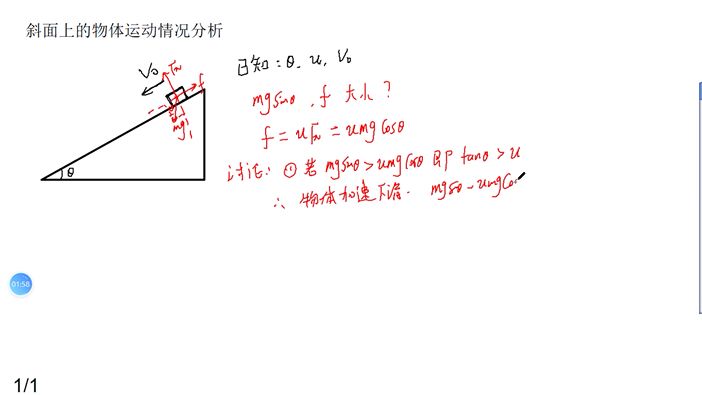 斜面上的物体运动情况分析
已知:θ、u、V₀
V₀ Fₙ f
mg
θ
mgsinθ、f 大小?
f = uFₙ = umgCosθ
讨论:① 若 mgsinθ > umgCosθ 即 tanθ > u
∴ 物体加速下滑. mgsθ - umgCo
01:58
1/1